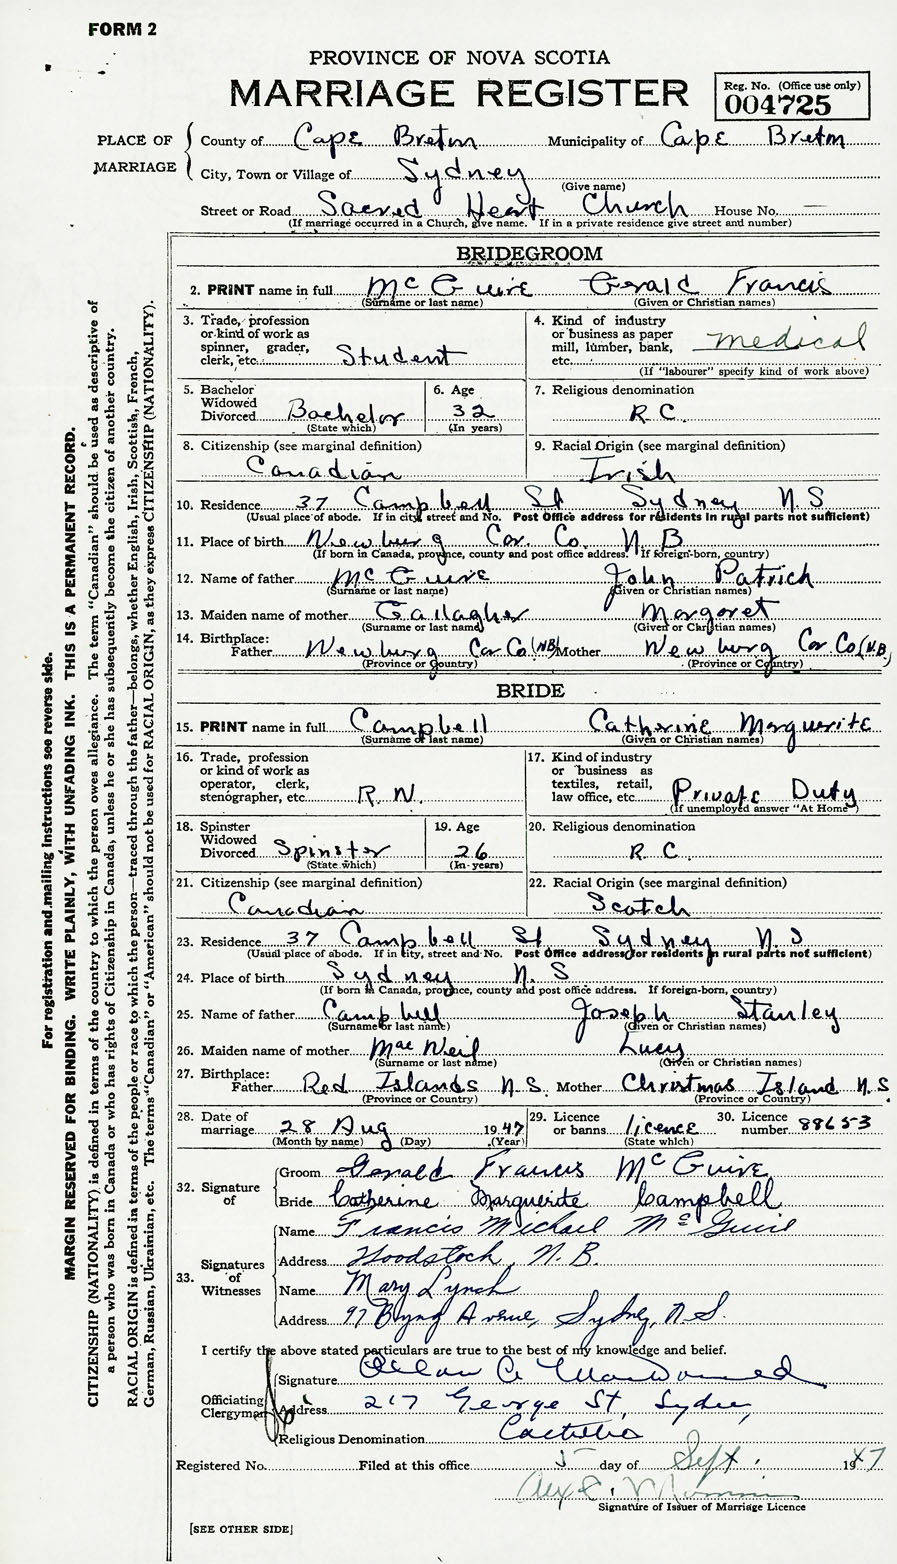 FORM 2
PROVINCE OF NOVA SCOTIA
MARRIAGE REGISTER
Reg. No. (Office use only)
004725
PLACE OF MARRIAGE
County of Cape Breton Municipality of Cape Breton
City, Town or Village of Sydney
(Give name)
Street or Road Sacred Heart Church House No. —
(If marriage occurred in a Church, give name. If in a private residence give street and number)
BRIDEGROOM
2. PRINT name in full McGuire Gerald Francis
(Surname or last name) (Given or Christian names)
3. Trade, profession or kind of work as spinner, grader, clerk, etc. Student
4. Kind of industry or business as paper mill, lumber, bank, etc. Medical
(If "labourer" specify kind of work above)
5. Bachelor Widowed Divorced Bachelor
(State which)
6. Age 32
(In years)
7. Religious denomination R.C.
8. Citizenship (see marginal definition) Canadian
9. Racial Origin (see marginal definition) Irish
10. Residence 37 Campbell St Sydney N.S
(Usual place of abode. If in city street and No. Post Office address for residents in rural parts not sufficient)
11. Place of birth Newburg Car. Co. N.B
(If born in Canada, province, county and post office address. If foreign-born, country)
12. Name of father McGuire John Patrick
(Surname or last name) (Given or Christian names)
13. Maiden name of mother Gallagher Margaret
(Surname or last name) (Given or Christian names)
14. Birthplace:
Father Newburg Car Co (NB) Mother Newburg Car Co (N.B.
(Province or Country) (Province or Country)
BRIDE
15. PRINT name in full Campbell Catherine Marguerite
(Surname or last name) (Given or Christian names)
16. Trade, profession or kind of work as operator, clerk, stenographer, etc. R.N.
17. Kind of industry or business as textiles, retail, law office, etc. Private Duty
(If unemployed answer "At Home")
18. Spinster Widowed Divorced Spinster
(State which)
19. Age 26
(In years)
20. Religious denomination R.C.
21. Citizenship (see marginal definition) Canadian
22. Racial Origin (see marginal definition) Scotch
23. Residence 37 Campbell St Sydney N.S
(Usual place of abode. If in city, street and No. Post Office address for residents in rural parts not sufficient)
24. Place of birth Sydney N.S
(If born in Canada, province, county and post office address. If foreign-born, country)
25. Name of father Campbell Joseph Stanley
(Surname or last name) (Given or Christian names)
26. Maiden name of mother MacNeil Lucy
(Surname or last name) (Given or Christian names)
27. Birthplace:
Father Red Islands N.S. Mother Christmas Island N.S
(Province or Country) (Province or Country)
28. Date of marriage 28 Aug 1947
(Month by name) (Day) (Year)
29. Licence or banns licence
(State which)
30. Licence number 88653
32. Signature of
Groom Gerald Francis McGuire
Bride Catherine Marguerite Campbell
33. Signatures of Witnesses
Name Francis Michael McGuire
Address Woodstock, N.B.
Name Mary Lynch
Address 97 Byng Avenue, Sydney, N.S.
I certify the above stated particulars are true to the best of my knowledge and belief.
Officiating Clergyman
Signature
Address 217 George St, Sydney
Religious Denomination Catholic
Registered No. Filed at this office 5 day of Sept. 1947
Signature of Issuer of Marriage Licence
[SEE OTHER SIDE]
For registration and mailing instructions see reverse side.
MARGIN RESERVED FOR BINDING. WRITE PLAINLY, WITH UNFADING INK. THIS IS A PERMANENT RECORD.
CITIZENSHIP (NATIONALITY) is defined in terms of the country to which the person owes allegiance. The term "Canadian" should be used as descriptive of
a person who was born in Canada or who has rights of Citizenship in Canada, unless he or she has subsequently become the citizen of another country.
RACIAL ORIGIN is defined in terms of the people or race to which the person—traced through the father—belongs, whether English, Irish, Scottish, French,
German, Russian, Ukrainian, etc. The terms "Canadian" or "American" should not be used for RACIAL ORIGIN, as they express CITIZENSHIP (NATIONALITY).